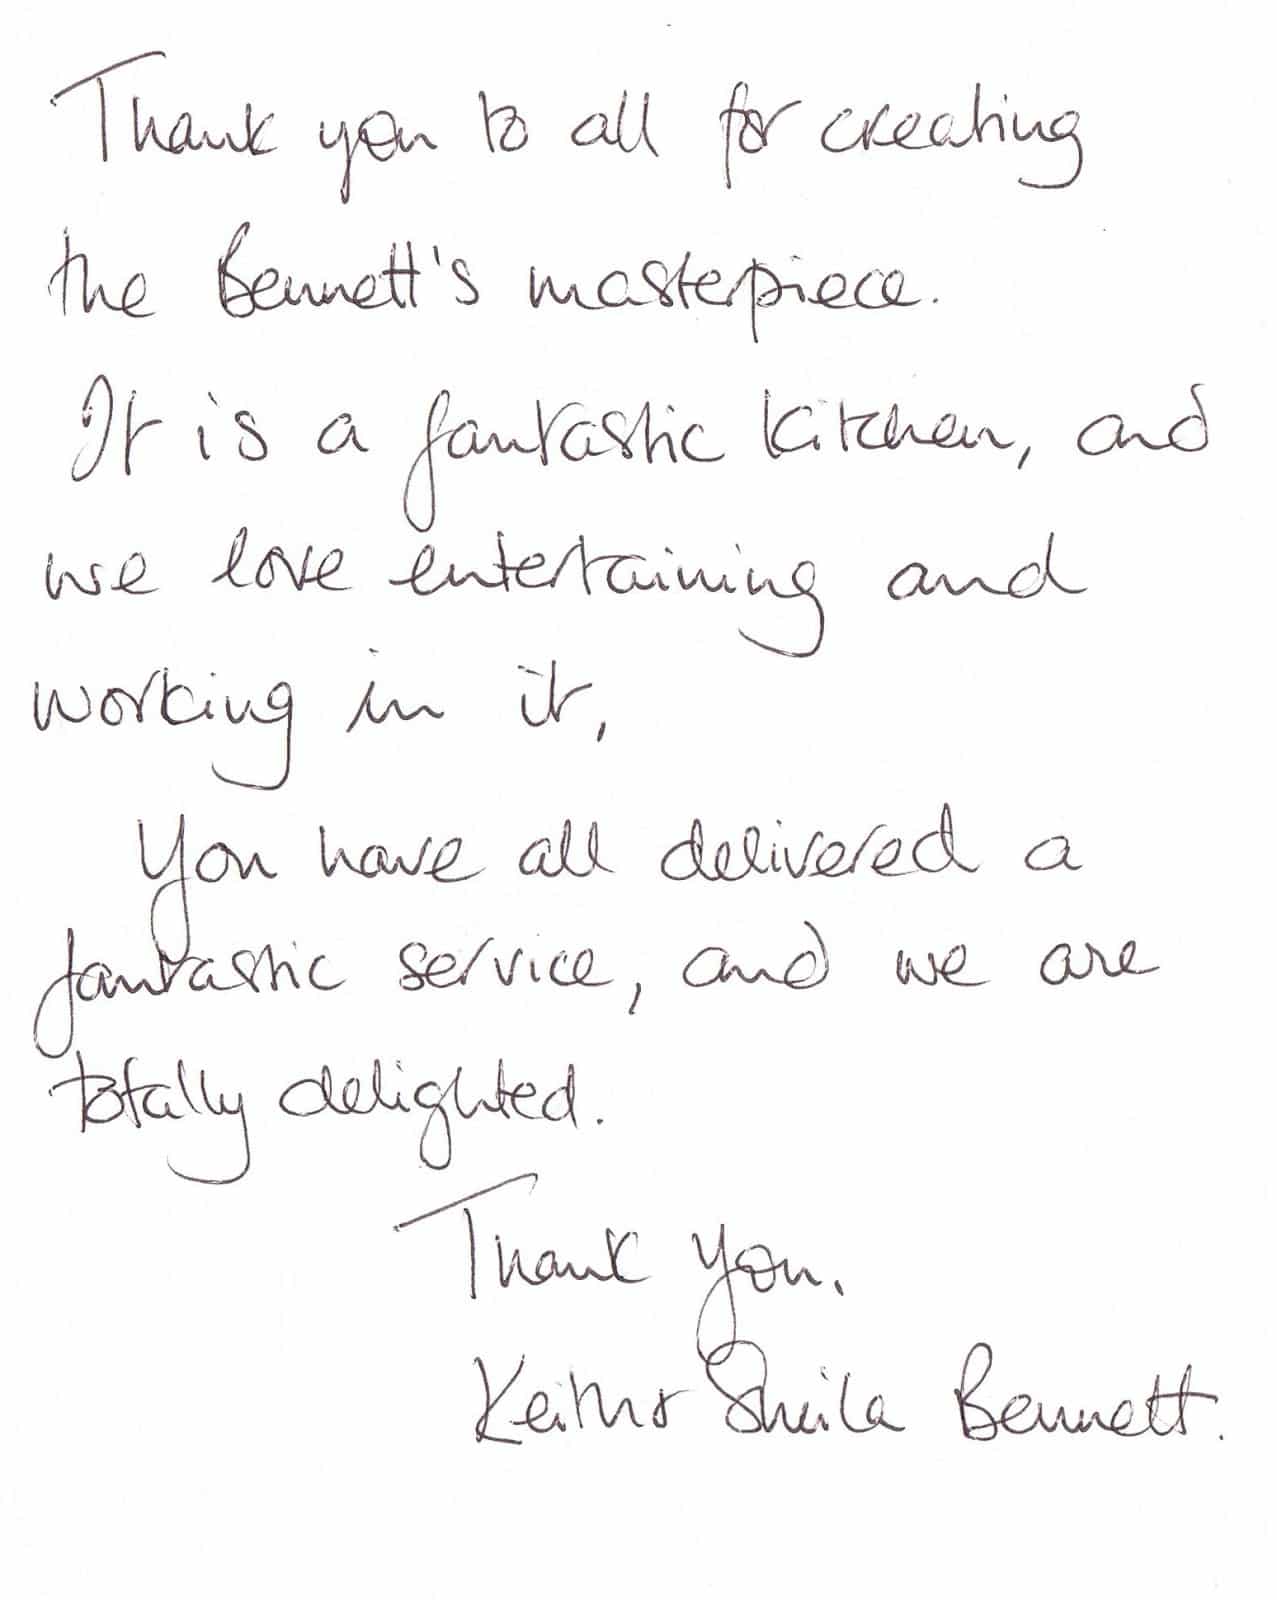 Thank you to all for creating
the Bennett's masterpiece.
It is a fantastic kitchen, and
we love entertaining and
working in it,
You have all delivered a
fantastic service, and we are
totally delighted.
Thank you.
Keith & Sheila Bennett.